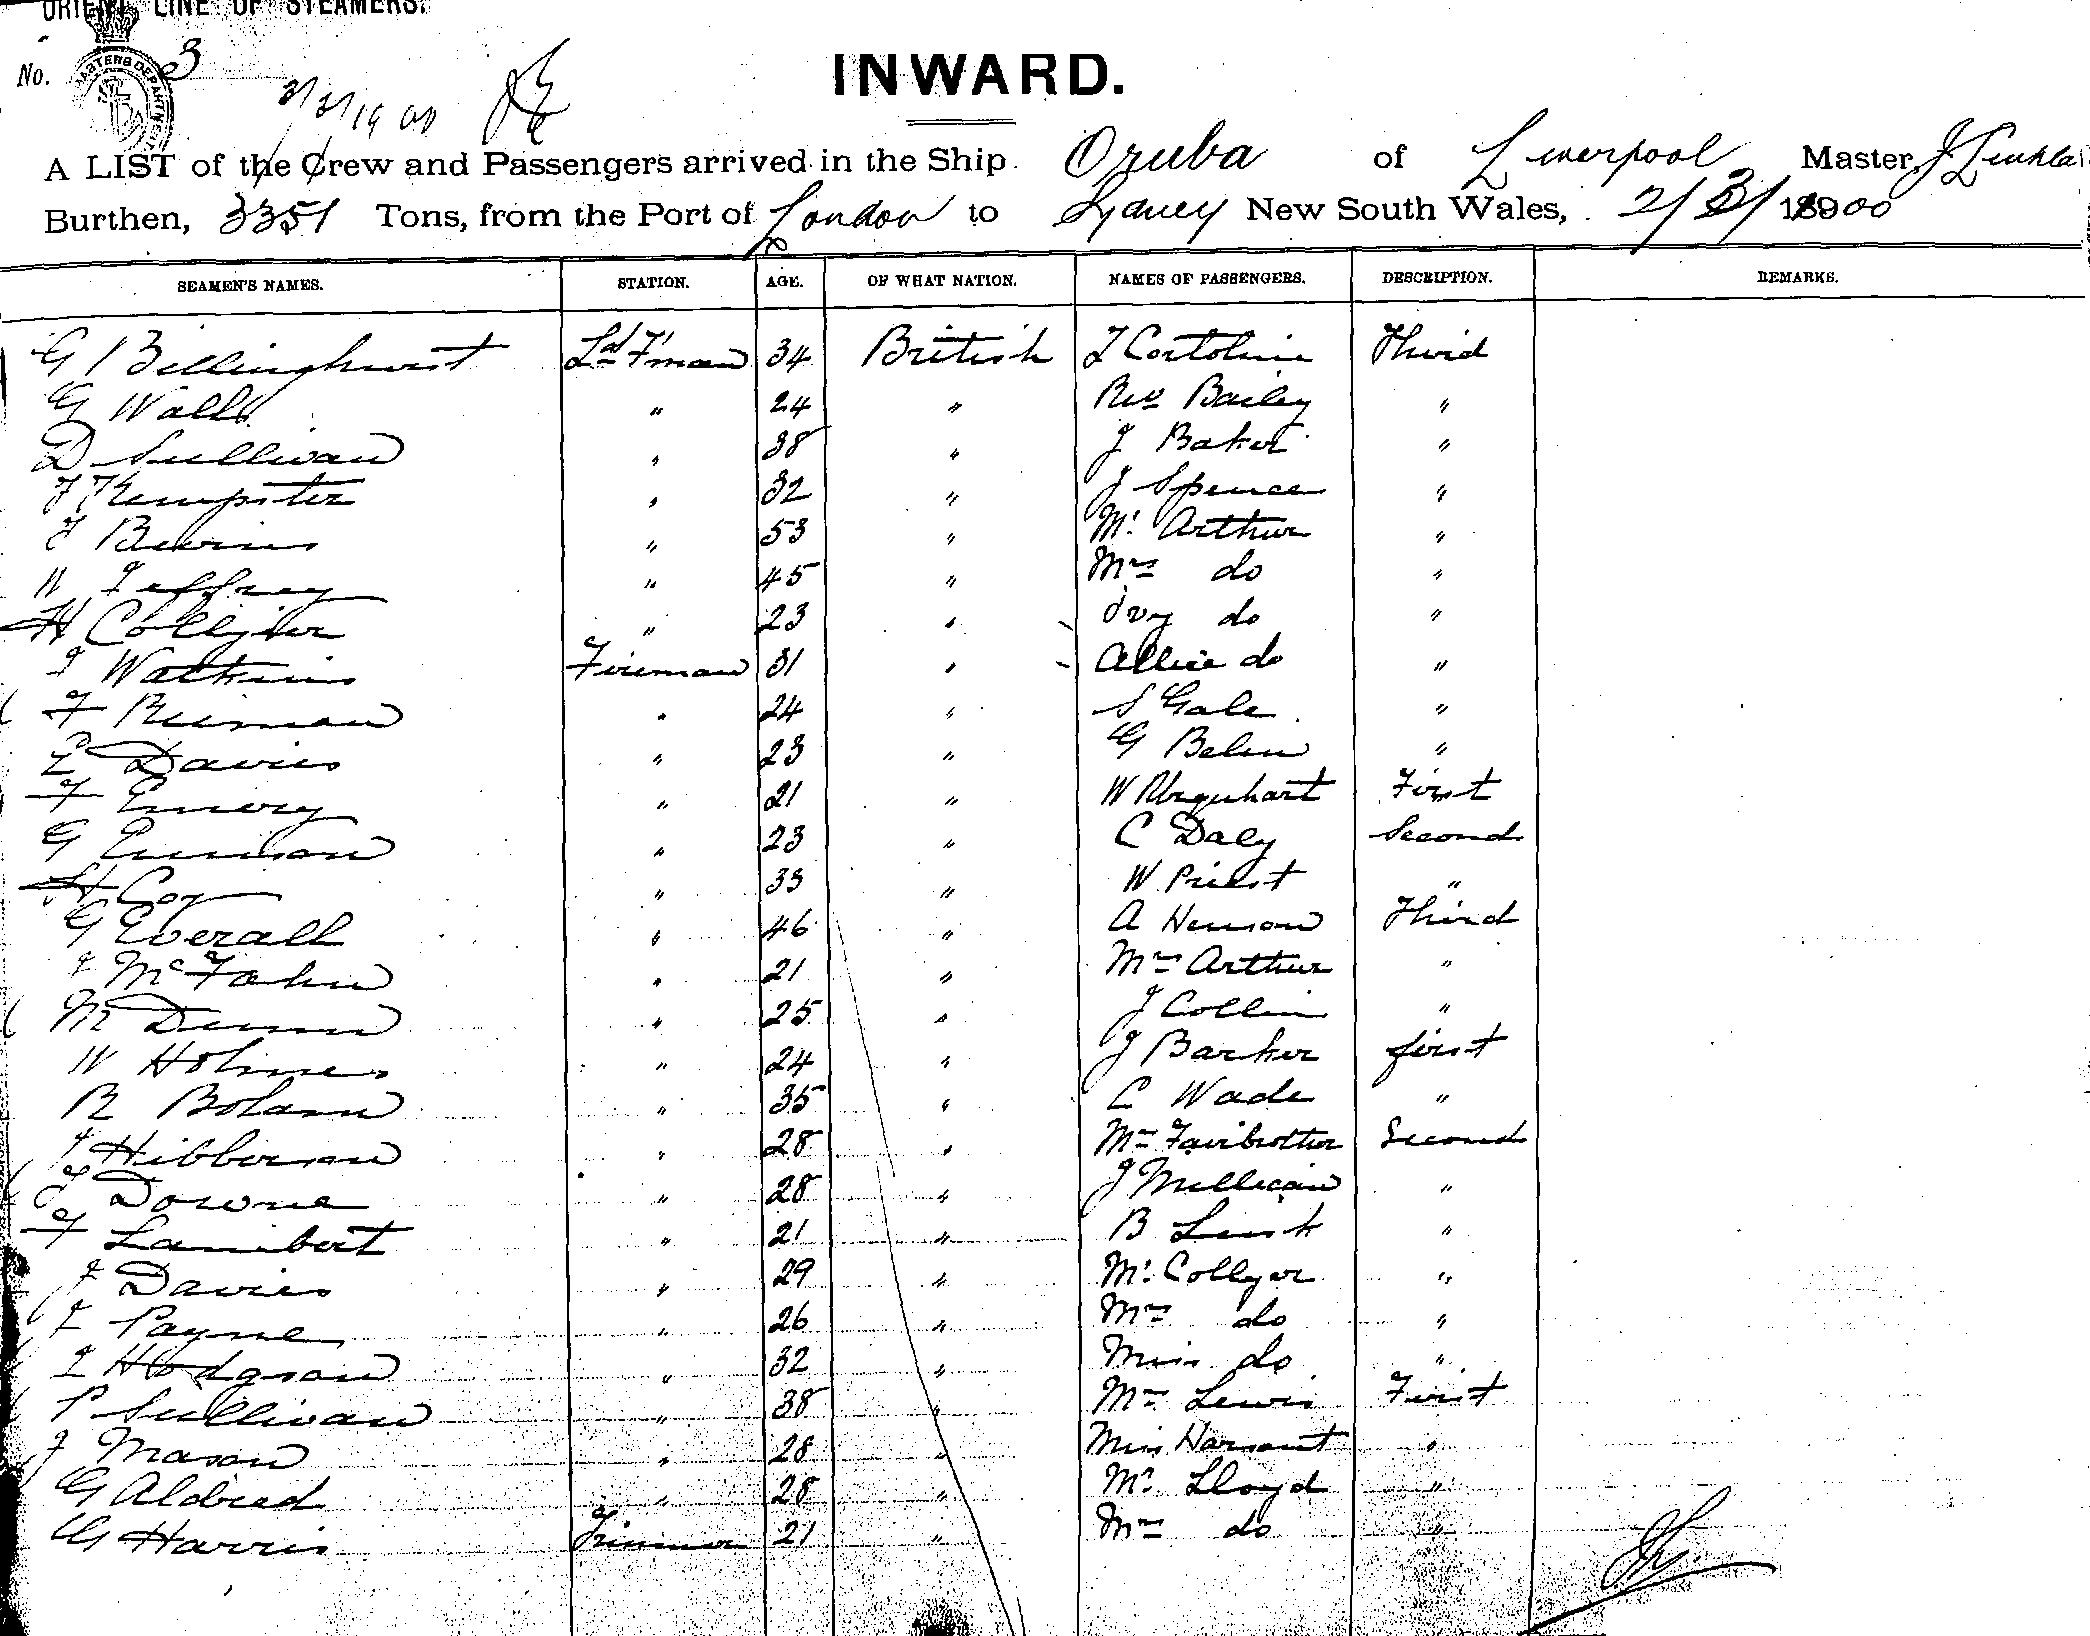 ORIENT LINE OF STEAMERS.
No. 3
2/3/1900
INWARD.
A LIST of the Crew and Passengers arrived in the Ship Oruba of Liverpool Master, J
Burthen, 3351 Tons, from the Port of London to Sydney New South Wales, 2/3/1900
SEAMEN'S NAMES. STATION. AGE. OF WHAT NATION. NAMES OF PASSENGERS. DESCRIPTION. REMARKS.
G Billinghurst Ld F'man 34 British Third
G Walls " 24 " Bailey "
D Sullivan " 38 " J Baker "
J Kempster " 32 " J Spence "
J " 53 " Mr Arthur "
W Jeffrey " 45 " Mrs do "
H Collyer " 23 " Ivy do "
J Watkins Fireman 31 " Allie do "
F " 24 " S Gale "
E Davies " 23 " G "
F Emery " 21 " W Urquhart First
G " 23 " C Daly Second
H Coy " 33 " W Priest "
G Everall " 46 " A Henson Third
J " 21 " Mrs Arthur "
M Dunn " 25 " J Collin "
W Holmes " 24 " J Barker first
R Bolam " 35 " C Wade "
J Hibberson " 28 " Mrs Fairbrother Second
Downe " 28 " J Millican "
F Lambert " 21 " B "
J Davies " 29 " Mr Collyer "
J Payne " 26 " Mrs do "
J Hodgson " 32 " Miss do "
P Sullivan " 38 " Mrs Lewis First
J Mason " 28 " Miss Harsant "
G Aldred " 28 " Mr Lloyd "
G Harris Trimmer 21 " Mrs do "